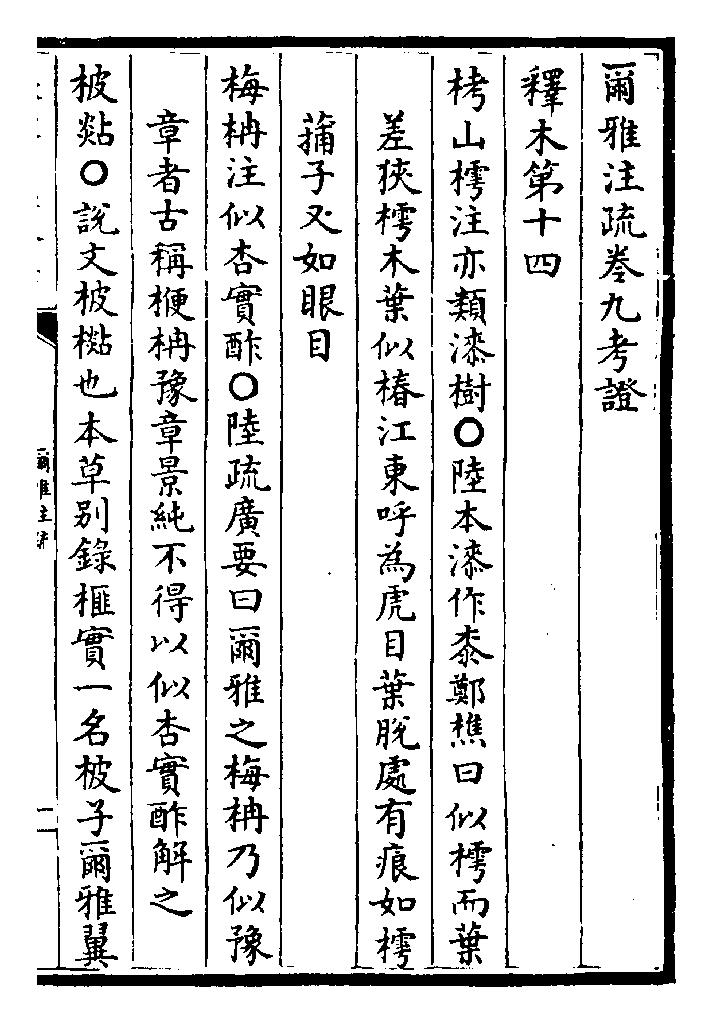 爾雅注疏卷九考證
釋木第十四
栲山樗注亦類漆樹○陸本漆作桼鄭樵曰似樗而葉
差狹樗木葉似椿江東呼為虎目葉脫處有痕如樗
蒱子又如眼目
梅柟注似杏實酢○陸疏廣要曰爾雅之梅柟乃似豫
章者古稱楩柟豫章景純不得以似杏實酢解之
柀煔○說文柀㯳也本草別錄榧實一名柀子爾雅翼
爾雅注疏